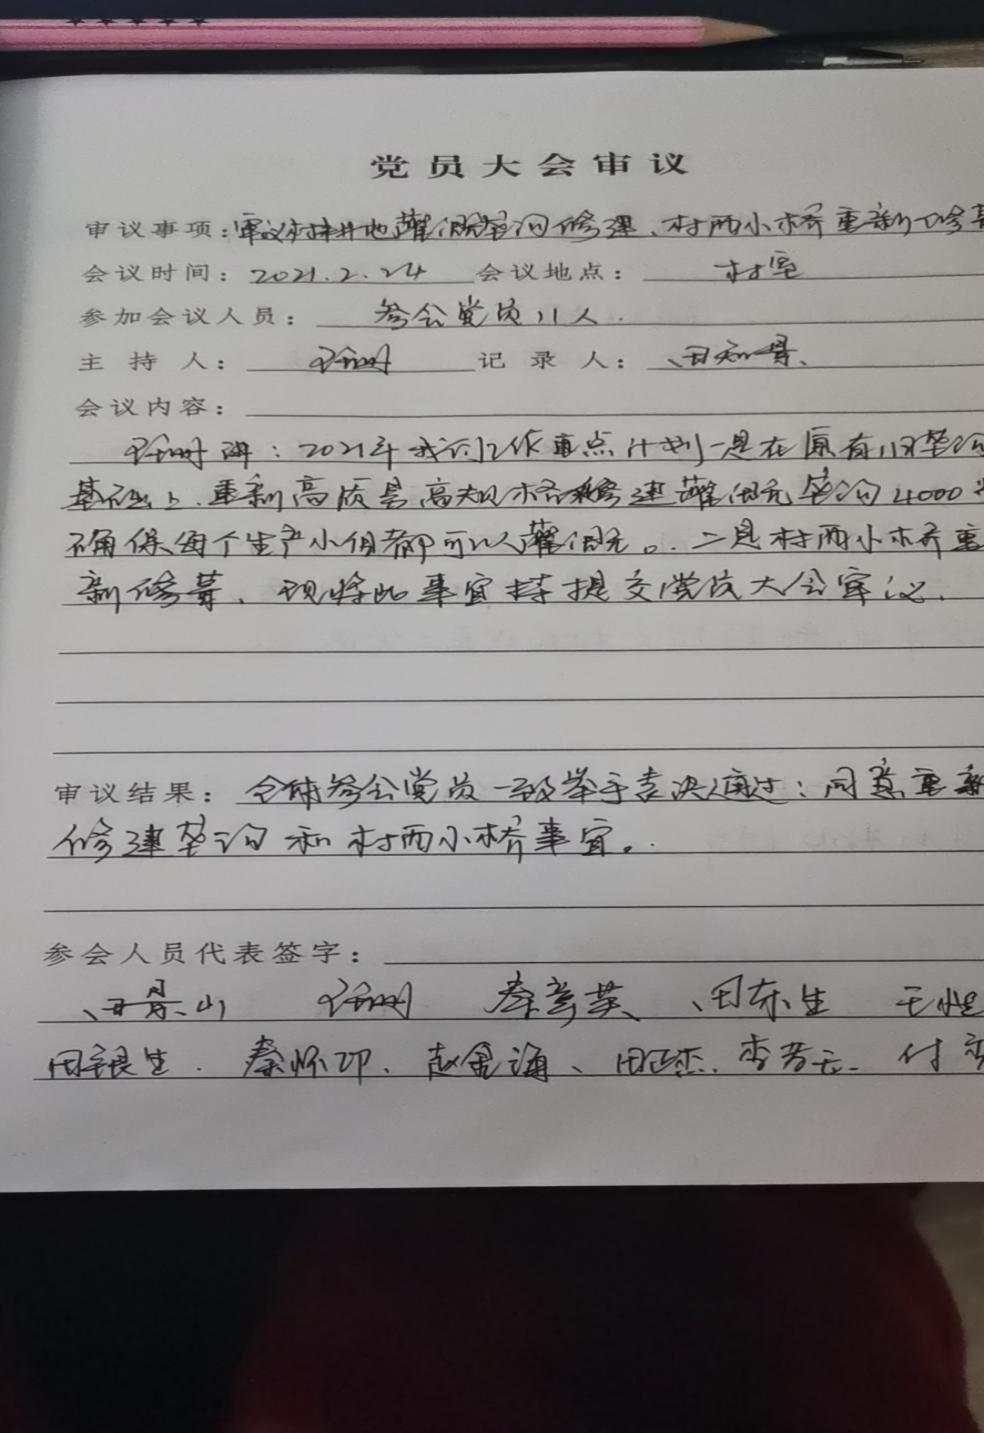 党员大会审议
审议事项:审议村耕地灌溉垄沟修建、村西小桥重新修葺
会议时间:2021.2.24 会议地点:村室
参加会议人员:参会党员11人.
主持人: 记录人:田
会议内容:
讲:2021年我们工作重点计划一是在原有旧垄沟
基础上.重新高质量高规格修建灌溉垄沟4000
确保每个生产小组都可以灌溉。.二是村西小桥重
新修葺、现将此事宜特提交党员大会审议.
审议结果:全体参会党员一致举手表决通过:同意重新
修建垄沟和村西小桥事宜。.
参会人员代表签字:
山 秦彦英、田东生 王
田银生.秦怀印、赵金海、田正杰.李芳云.付